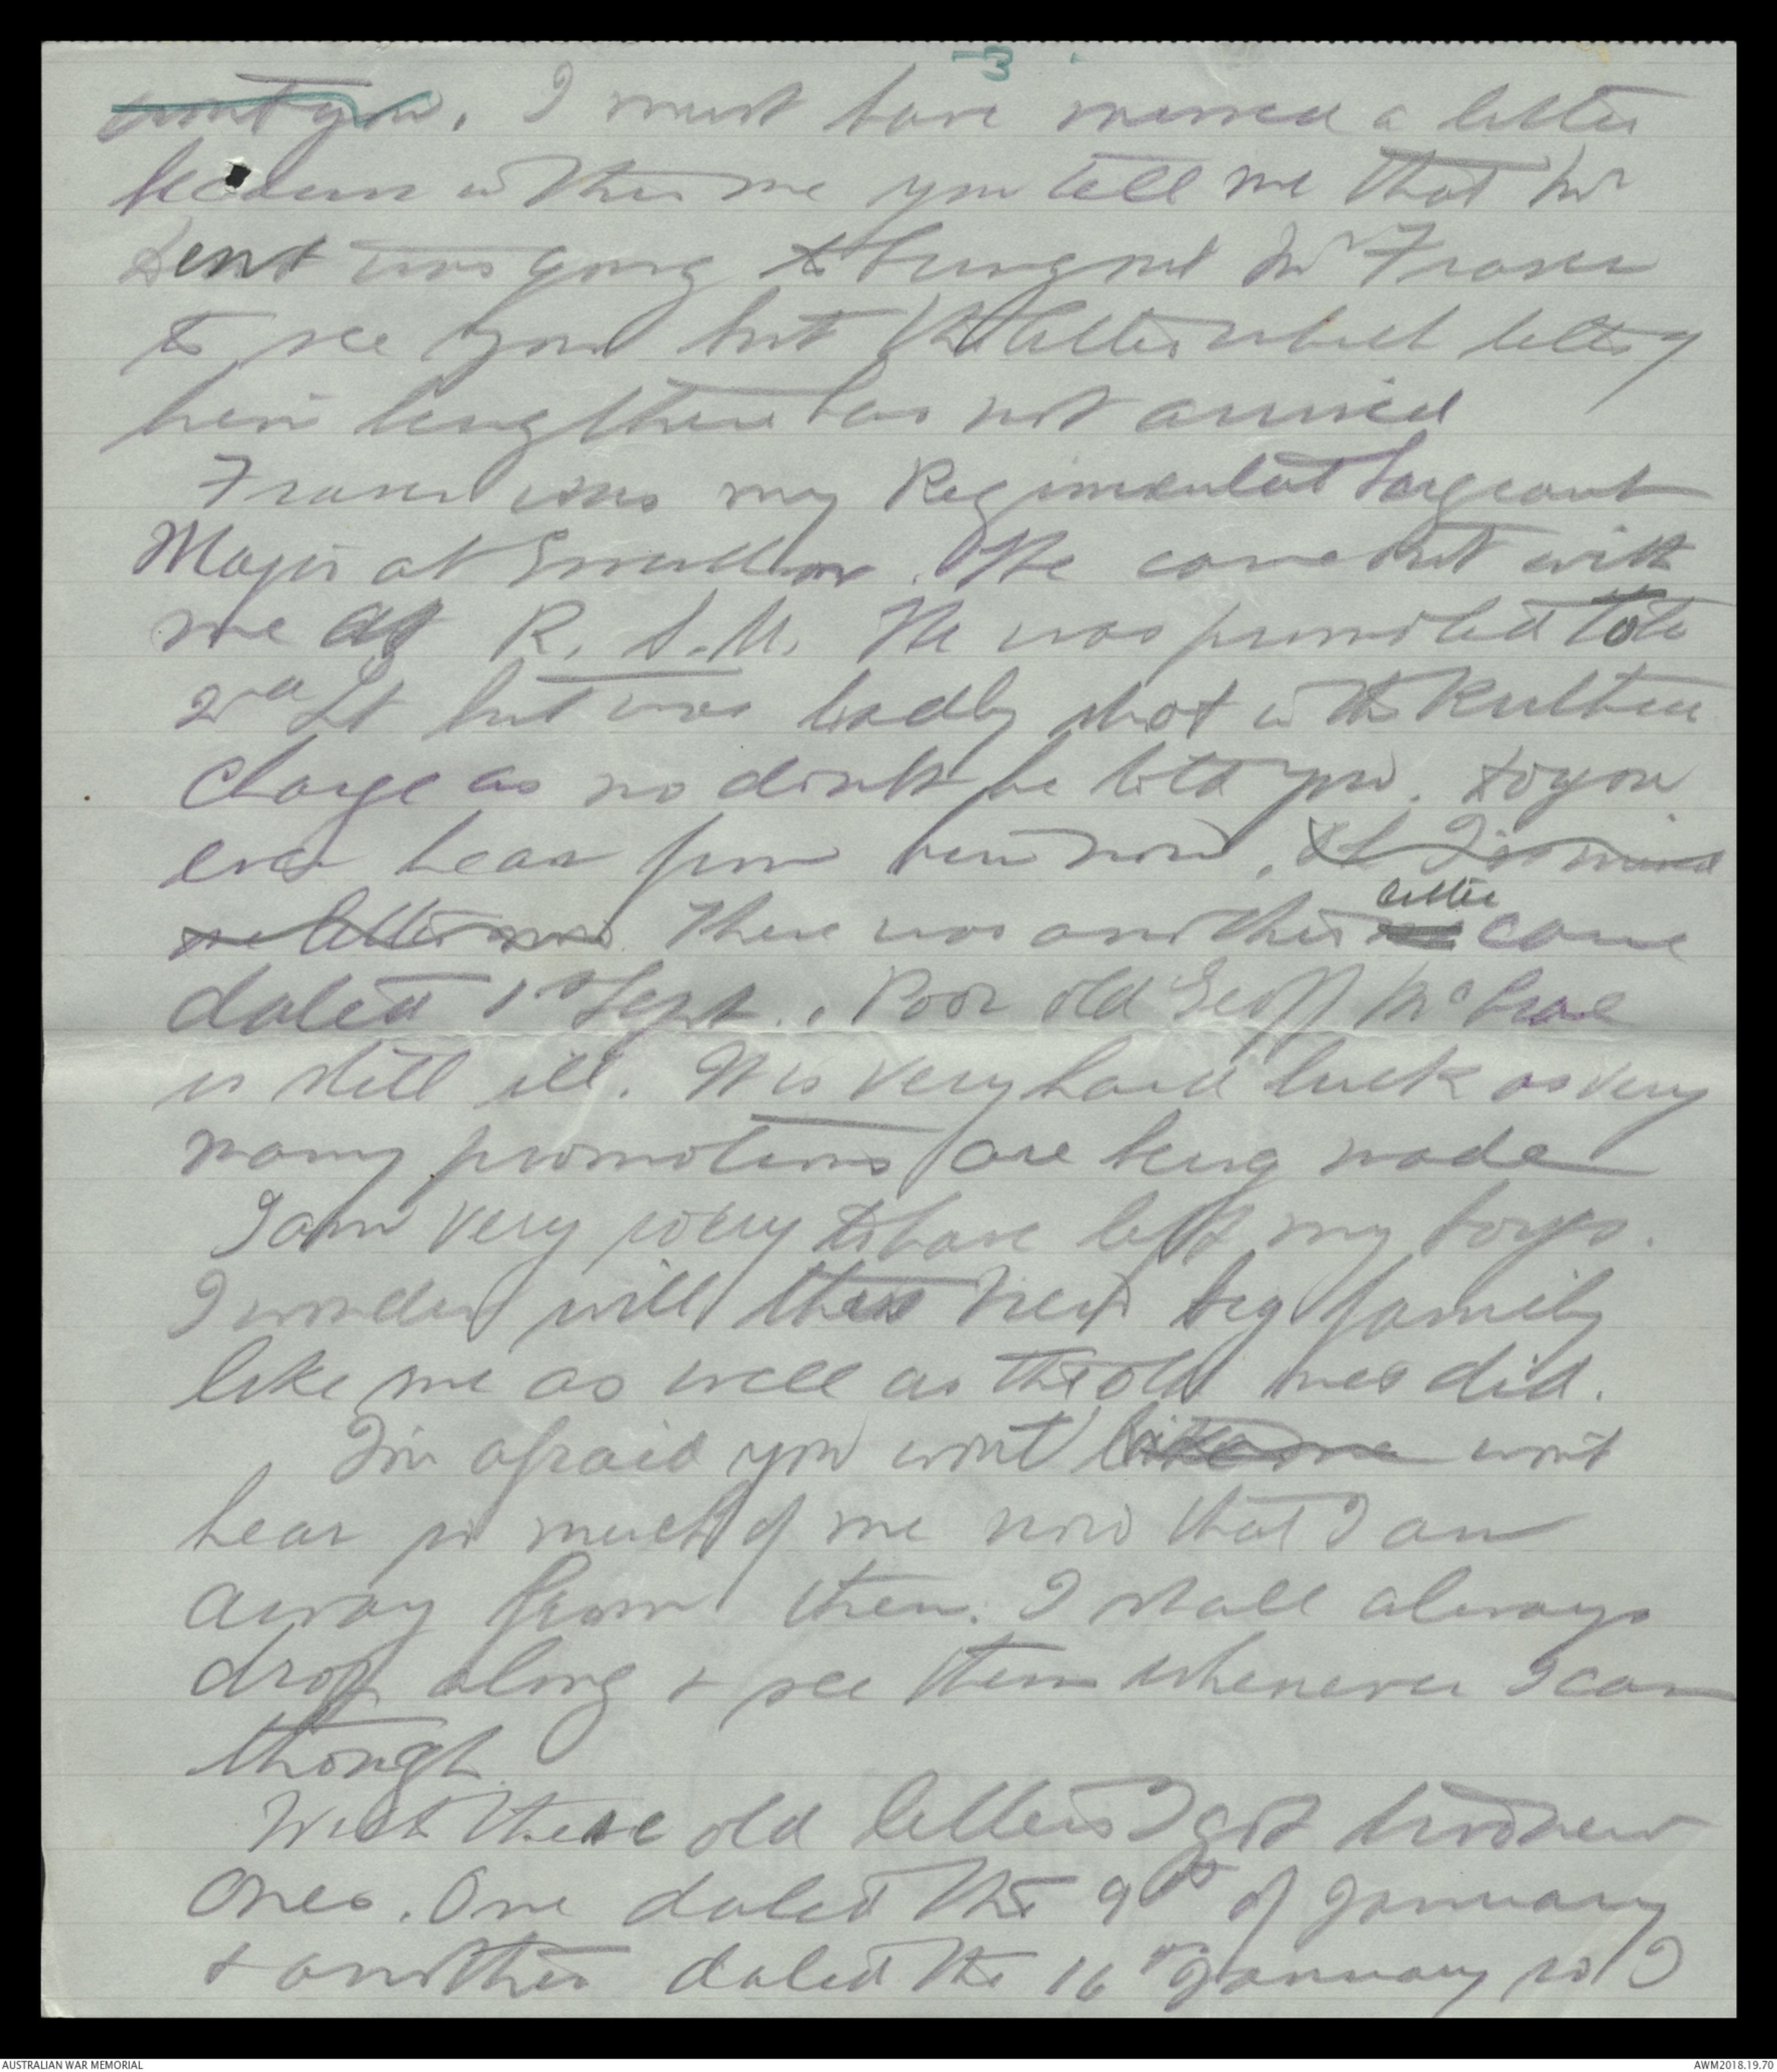 3
wont you. I must have missed a letter
because in this one you tell me that Mr
Dent was going to bring out Mr Fraser
to see you but the letter which tells of
him being there has not arrived
Fraser was my Regimental Sargeant
Major at Broadmeadows. He came out with
me as R.S.M. He was promoted to be
2nd Lt but was badly shot in the Krithia
Charge as no doubt he told you. Do you
ever hear from him now.
one letter now There was another letter came
dated 1st Sept.. Poor old Geoff McCrae
is still ill. It is very hard luck as very
many promotions are being made
I am very sorry to have left my boys.
I wonder will this next big family
like me as well as the old ones did.
I'm afraid you wont like me wont
hear so much of me now that I am
away from them. I shall always
drop along & see them whenever I can
though
With these old letters I got two new
ones. One dated the 9th of January
& another dated the 16th January so I
AUSTRALIAN WAR MEMORIAL
AWM2018.19.70